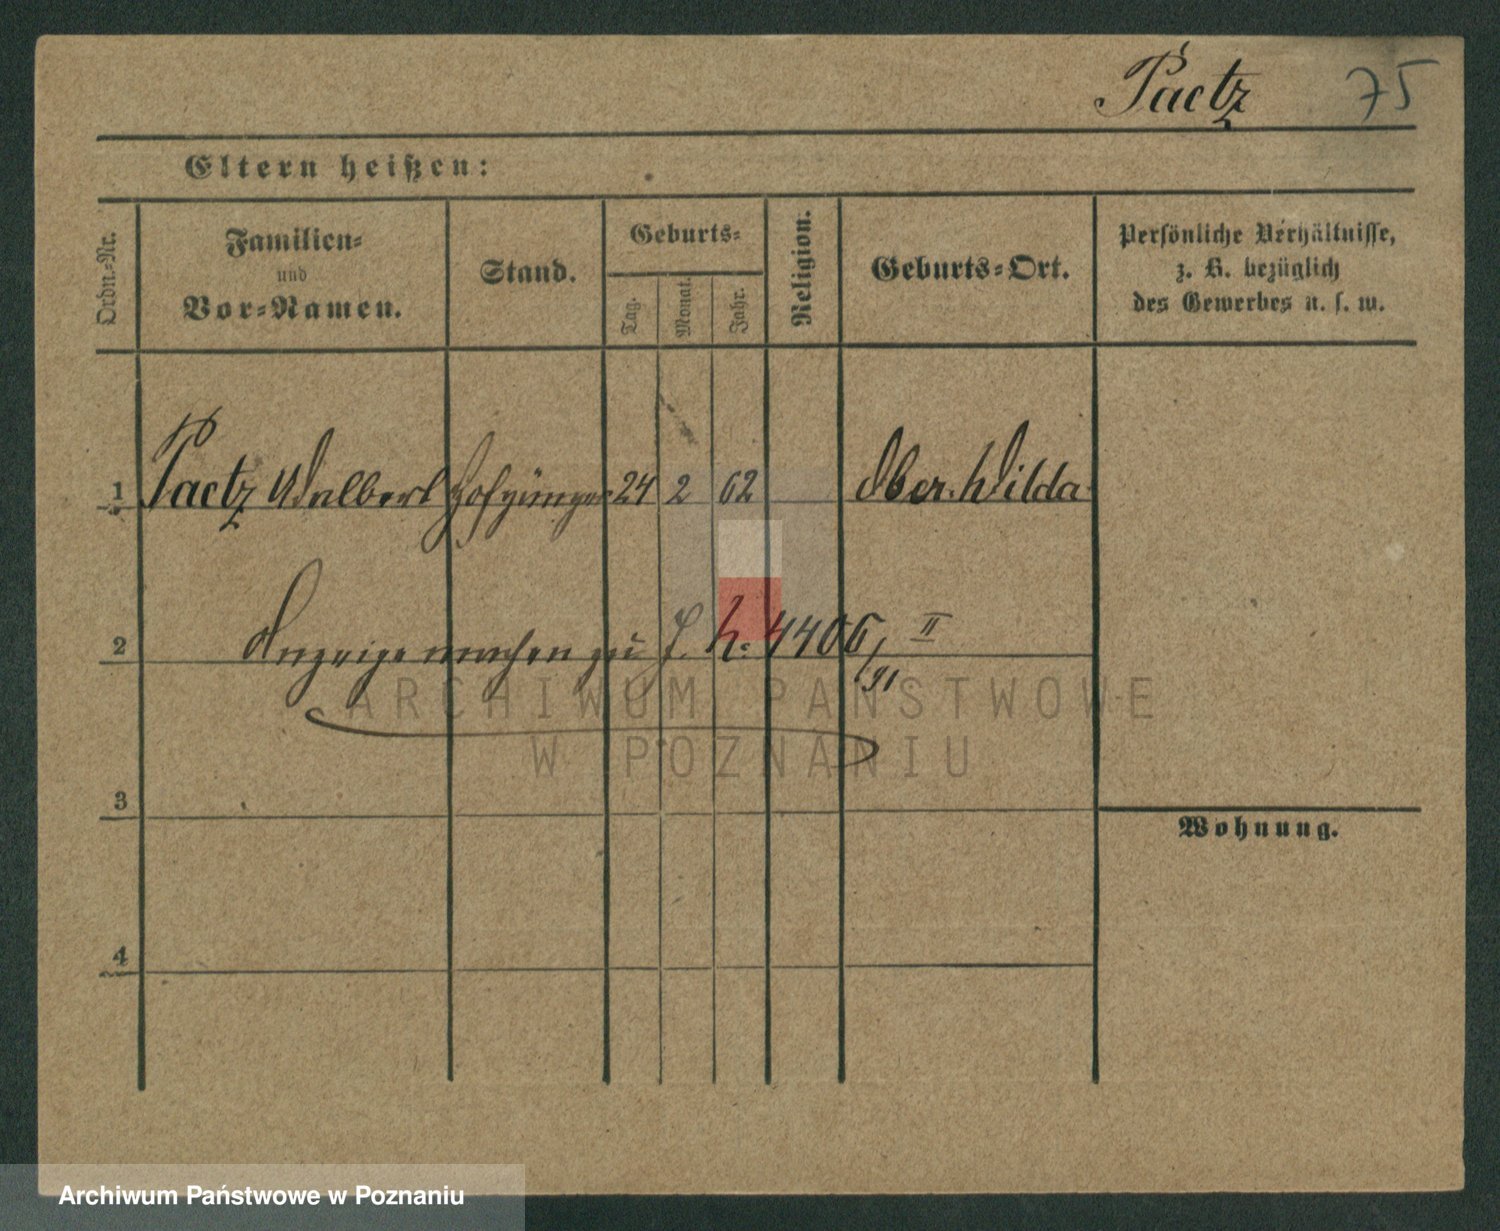 Paetz 75
Eltern heißen:
Ordn.-Nr.
Familien-
und
Vor-Namen.
Stand.
Geburts-
Tag.
Monat.
Jahr.
Religion.
Geburts-Ort.
Persönliche Verhältnisse,
z. B. bezüglich
des Gewerbes u. s. w.
1 Paetz Adalbert Hofjünger 24 2 62 Ober-Wilda
2 Anzeige machen zu J. h. 4406/91 II
ARCHIWUM PAŃSTWOWE
W POZNANIU
3
Wohnung.
4
Archiwum Państwowe w Poznaniu